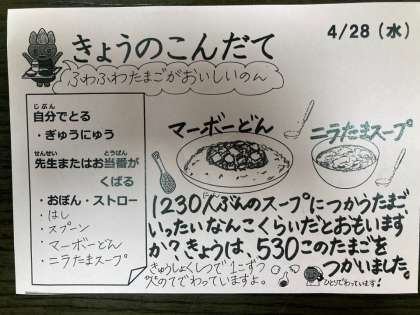 きょうのこんだて
4/28(水)
ふわふわたまごがおいしいのん
じぶん
自分でとる
・ぎゅうにゅう
せんせい とうばん
先生またはお当番が
くばる
・おぼん・ストロー
・はし
・スプーン
・マーボーどん
・ニラたまスープ
マーボーどん
ニラたまスープ
1230人ぶんのスープにつかうたまご
いったいなんこくらいだとおもいます
か?きょうは、530このたまごを
つかいました。
きゅうしょくしつで1こずつ
てでわっていますよ。
ひとりでわっています!